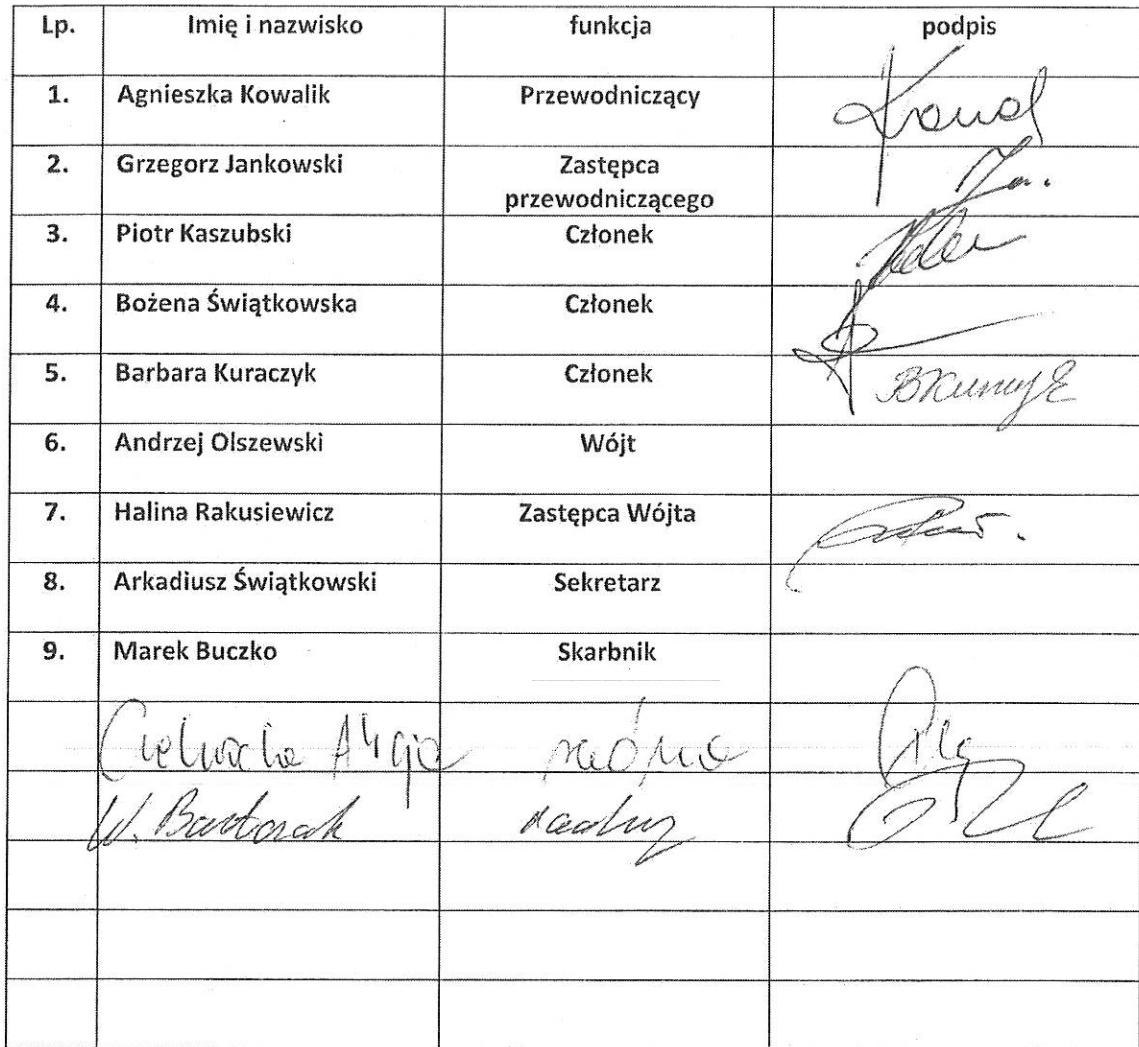 Lp. Imię i nazwisko funkcja podpis
1. Agnieszka Kowalik Przewodniczący
2. Grzegorz Jankowski Zastępca
przewodniczącego
3. Piotr Kaszubski Członek
4. Bożena Świątkowska Członek
5. Barbara Kuraczyk Członek
6. Andrzej Olszewski Wójt
7. Halina Rakusiewicz Zastępca Wójta
8. Arkadiusz Świątkowski Sekretarz
9. Marek Buczko Skarbnik
radna
W. Bartczak radny